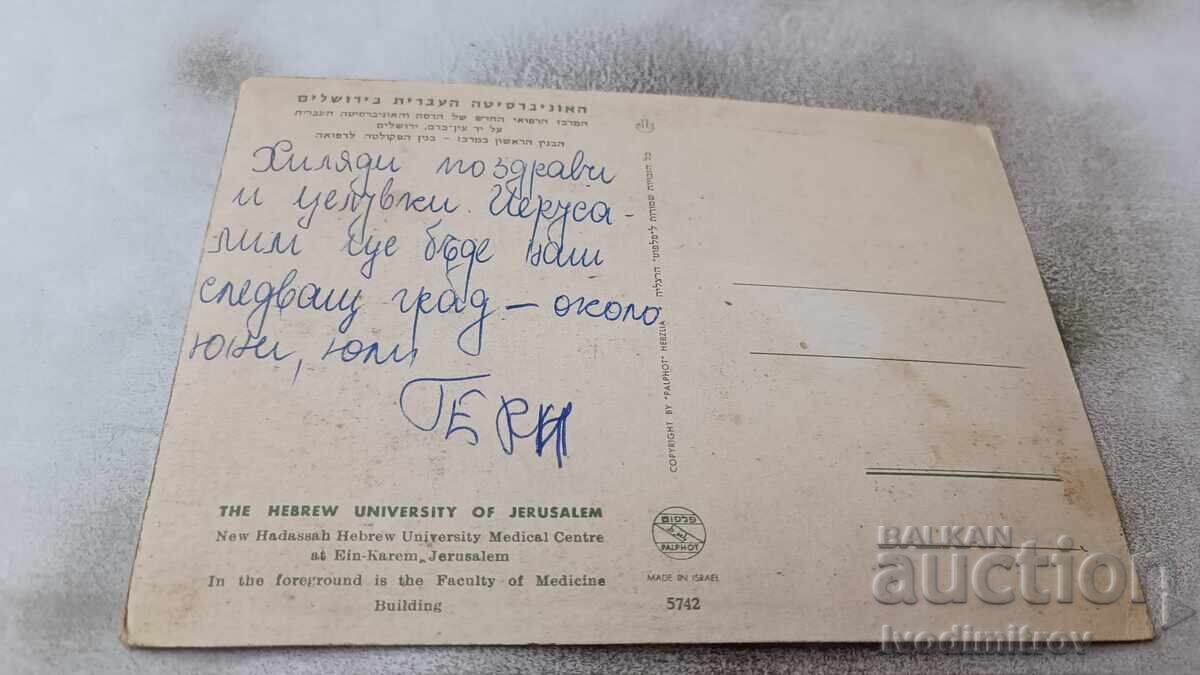 האוניברסיטה העברית בירושלים
המרכז הרפואי החדש של הדסה והאוניברסיטה העברית
על יד עין-כרם, ירושלים
הבנין הראשון במרכז – בנין הפקולטה לרפואה
Хиляди поздрави
и целувки. Иеруса-
лим ще бъде наш
следващ град – около
юни, юли
ГЕРИ
THE HEBREW UNIVERSITY OF JERUSALEM
New Hadassah Hebrew University Medical Centre
at Ein-Karem, Jerusalem
In the foreground is the Faculty of Medicine
Building
כל הזכויות שמורות ל"פלפוט" הרצליה
COPYRIGHT BY "PALPHOT" HERZLIA
PALPHOT
MADE IN ISRAEL
5742
BALKAN
auction
Ivodimitrov